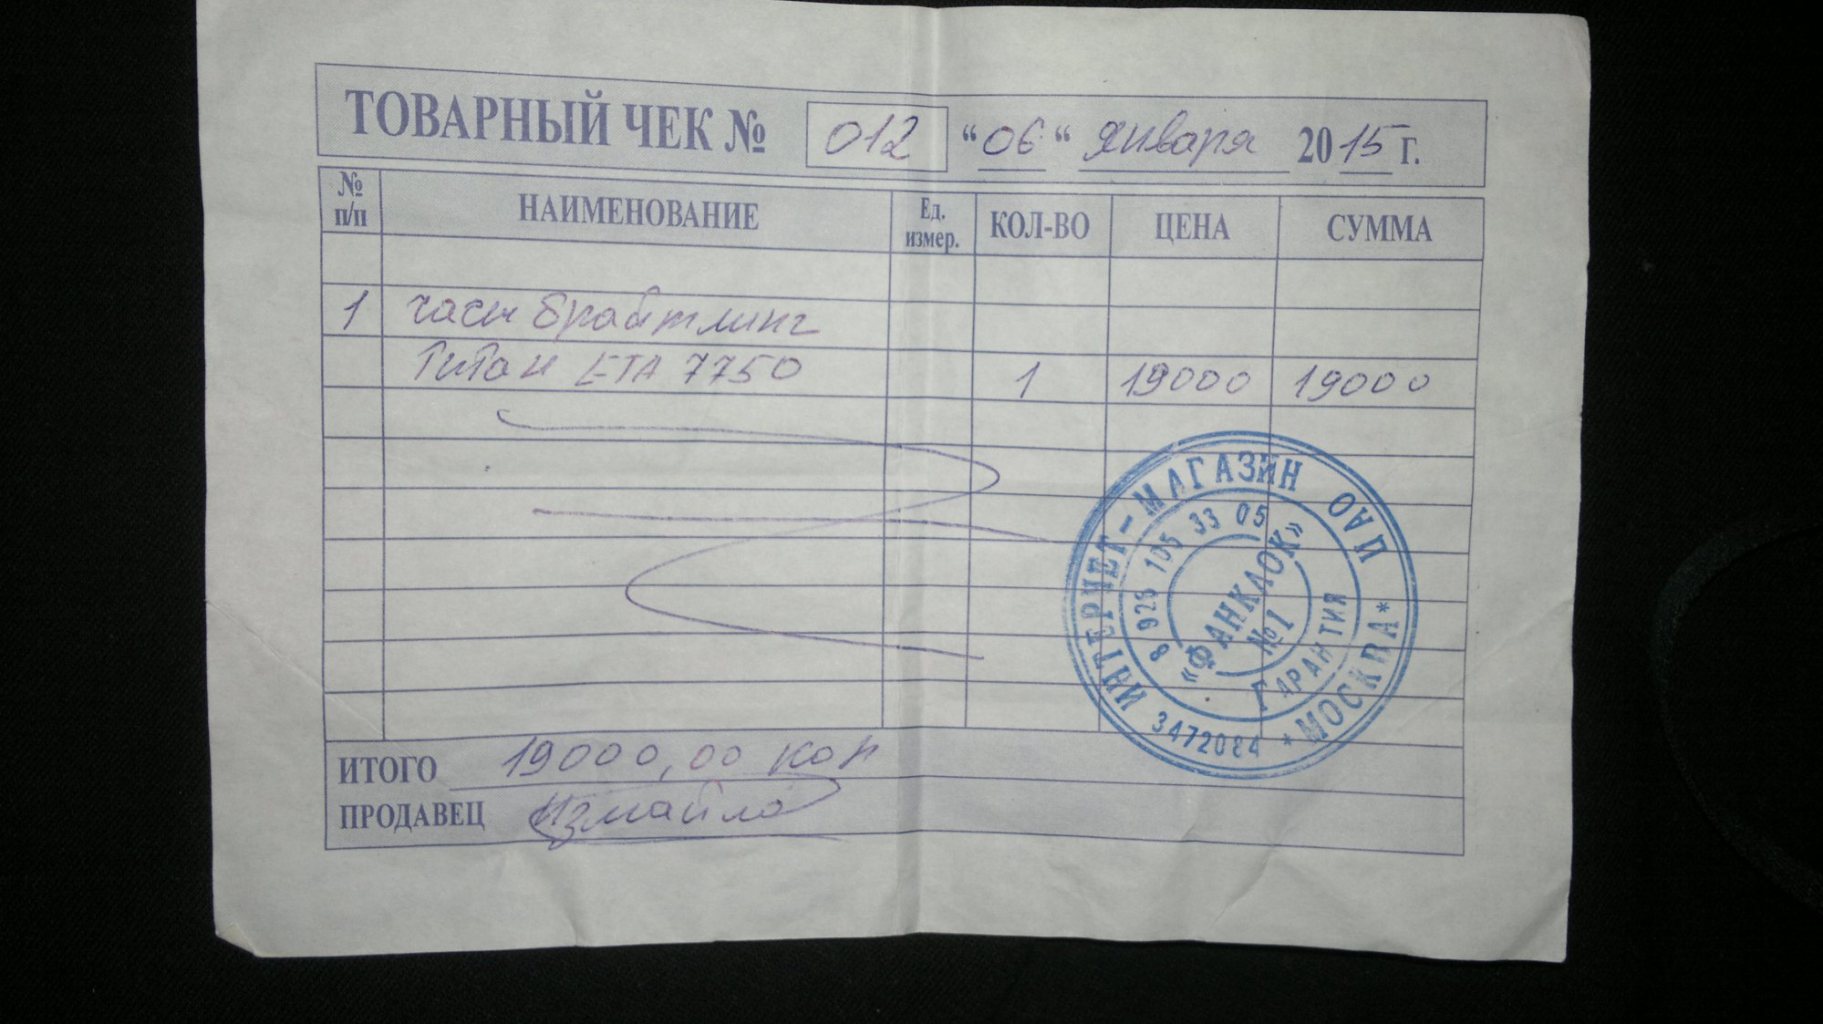 ТОВАРНЫЙ ЧЕК № 012 "06" января 2015 г.
№ п/п НАИМЕНОВАНИЕ Ед. измер. КОЛ-ВО ЦЕНА СУММА
1 часы Брайтлинг
Титан ETA 7750 1 19000 19000
ИНТЕРНЕТ-МАГАЗИН ОАО
8 926 105 33 05
«ФАНКЛОК»
№1
ГАРАНТИЯ
*МОСКВА*
3472084
ИТОГО 19000,00 коп
ПРОДАВЕЦ Измайло